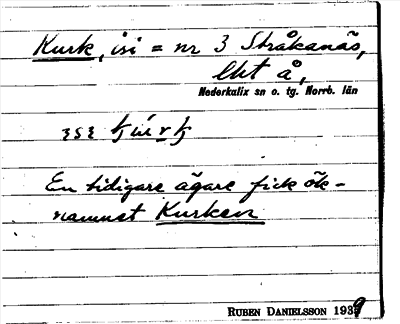 Kurk, isi = nr 3 Stråkanäs,
lht å,
Nederkalix sn o. tg. Norrb. län
En tidigare ägare fick ök-
namnet Kurken
RUBEN DANIELSSON 1939